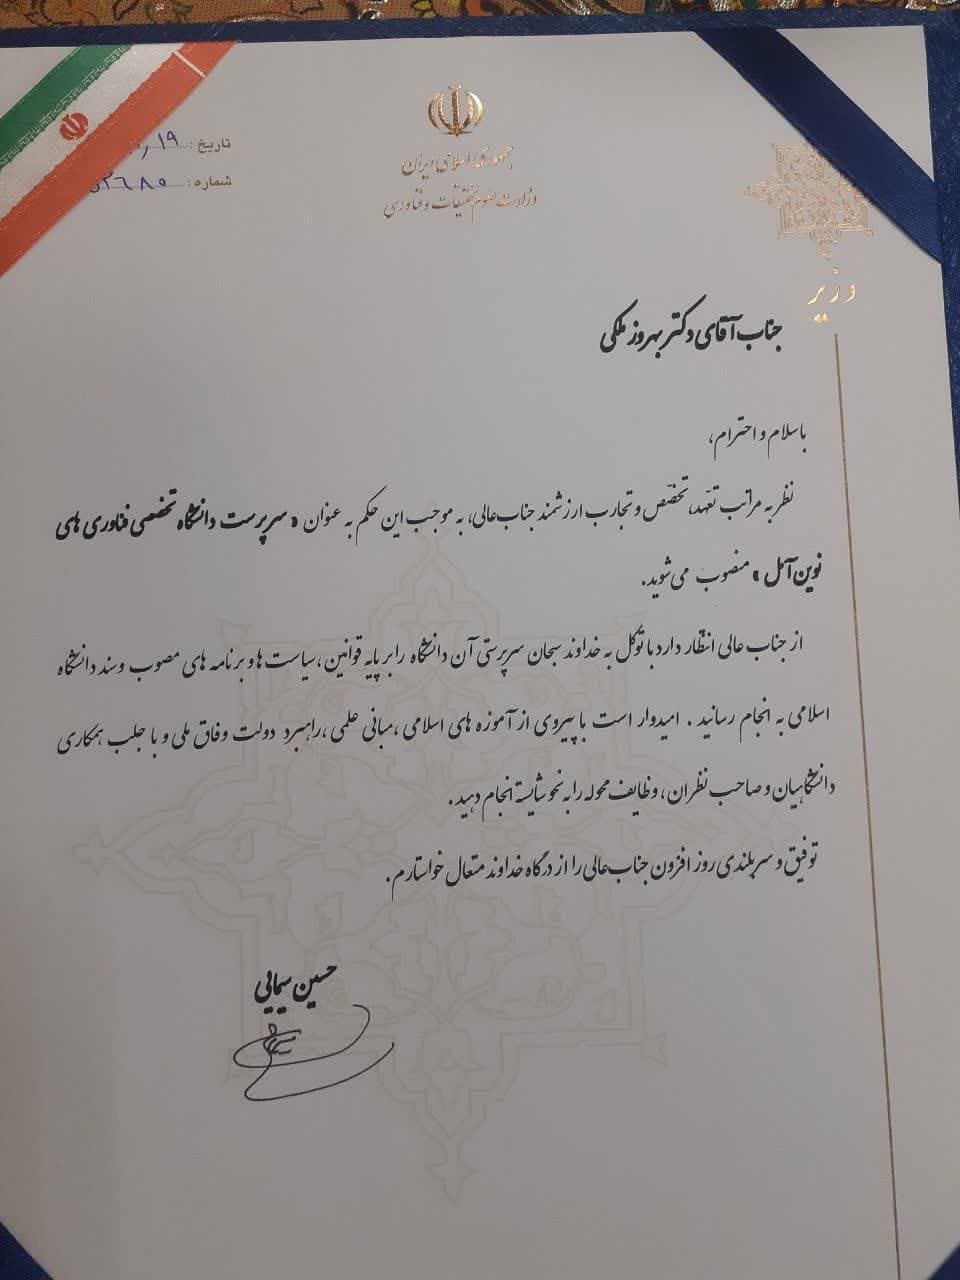 جمهوری اسلامی ایران
وزارت علوم تحقیقات و فناوری
تاریخ: ۱۹
شماره: ۲۶۸۵
وزیر
جناب آقای دکتر بهروز ملکی
با سلام و احترام،
نظر به مراتب تعهد، تخصّص و تجارب ارزشمند جناب‌عالی، به موجب این حکم به عنوان « سرپرست دانشگاه تخصصی فناوری های
نوین آمل » منصوب می‌شوید.
از جناب عالی انتظار دارد با توکل به خداوند سبحان سرپرستی آن دانشگاه را بر پایه قوانین ،سیاست ها و برنامه های مصوب و سند دانشگاه
اسلامی به انجام رسانید . امیدوار است با پیروی از آموزه های اسلامی ،مبانی علمی ،راهبرد دولت وفاق ملی و با جلب همکاری
دانشگاهیان و صاحب نظران ، وظایف محوله را به نحو شایسته انجام دهید .
توفیق و سربلندی روز افزون جناب‌عالی را از درگاه خداوند متعال خواستارم.
حسین سیمایی